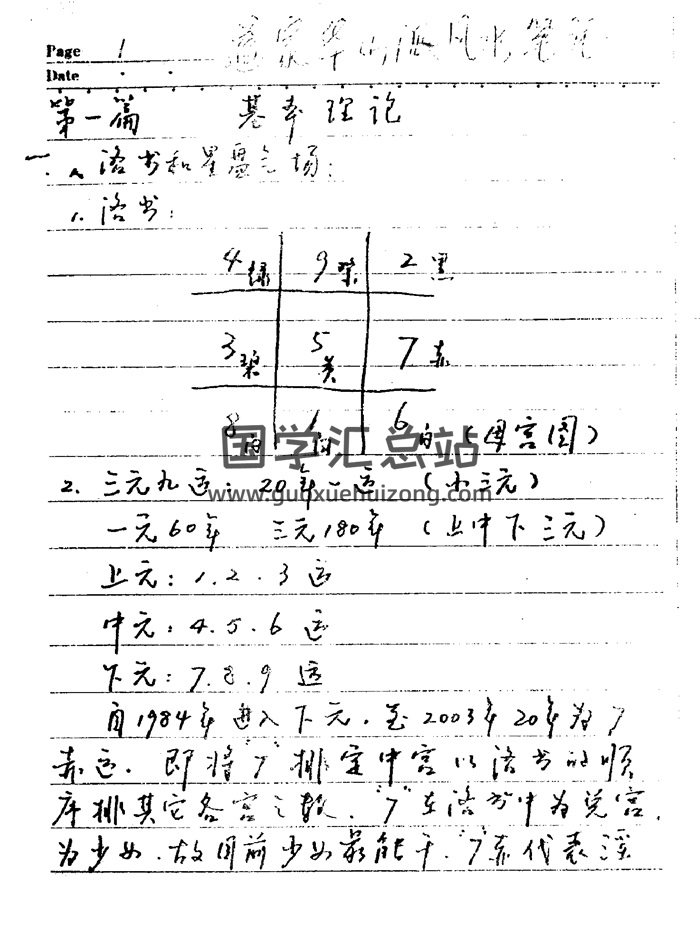 Page 1
Date
第一篇 基本理论
一. 洛书和星盘气场:
1. 洛书:
4绿 9紫 2黑
3碧 5黄 7赤
8白 1白 6白 (母宫图)
国学汇总站
www.guoxuehuizong.com
2. 三元九运: 20年一运 (小三元)
一元60年 三元180年 (上中下三元)
上元: 1.2.3运
中元: 4.5.6运
下元: 7.8.9运
自1984年进入下元. 至2003年20年为7
赤运. 即将"7"排定中宫以洛书的顺
序排其它各宫之数. "7"在洛书中为兑宫.
为少女. 故目前少女最能干. "7"赤代表